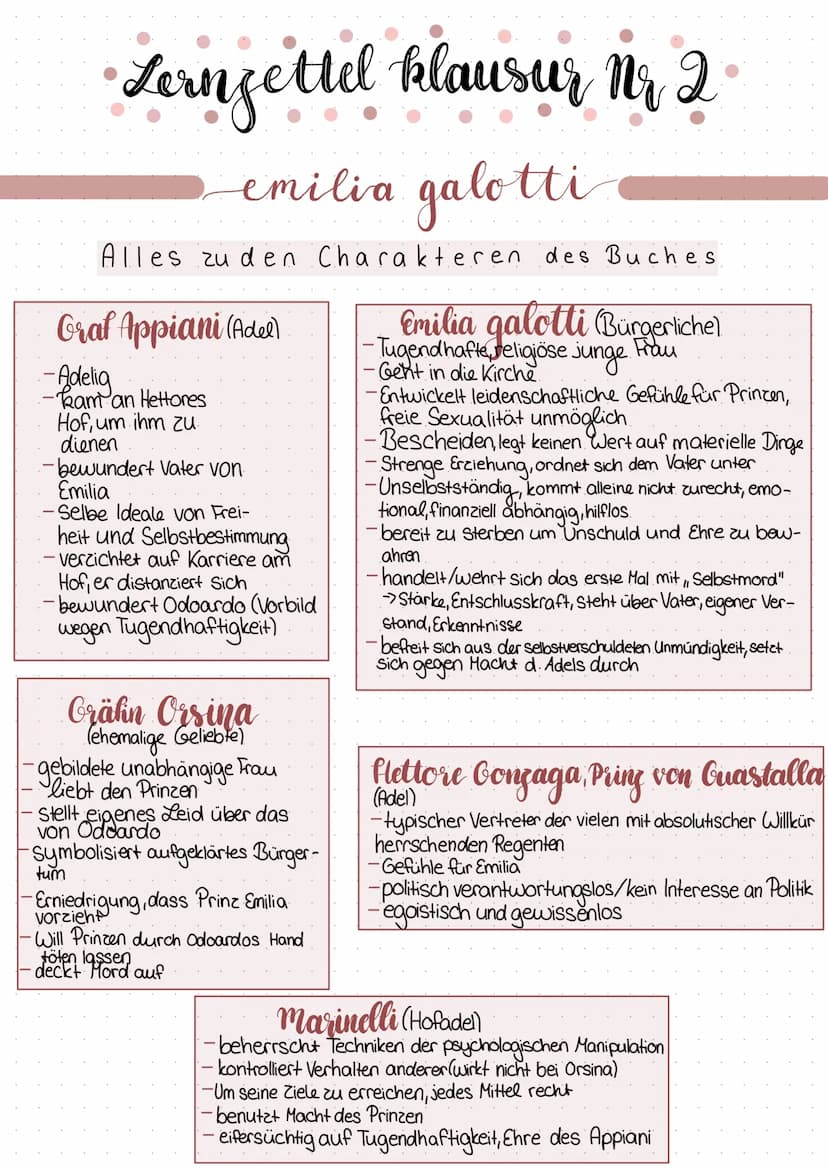 Lernzettel Klausur Nr 2
emilia galotti
Alles zu den Charakteren des Buches
Graf Appiani (Adel)
- Adelig
- kam an Hettores
Hof, um ihm zu
dienen
- bewundert Vater von
Emilia
- selbe Ideale von Frei-
heit und Selbstbestimmung
- verzichtet auf Karriere am
Hof, er distanziert sich
- bewundert Odoardo (Vorbild
wegen Tugendhaftigkeit)
Emilia galotti (Bürgerliche)
- Tugendhafte, religiöse junge Frau
- Geht in die Kirche
- Entwickelt leidenschaftliche Gefühle für Prinzen,
freie Sexualität unmöglich
- Bescheiden, legt keinen Wert auf materielle Dinge
- Strenge Erziehung, ordnet sich dem Vater unter
- Unselbstständig, kommt alleine nicht zurecht, emo-
tional, finanziell abhängig, hilflos
- bereit zu sterben um Unschuld und Ehre zu bew-
ahren
- handelt/wehrt sich das erste Mal mit „Selbstmord"
→ Stärke, Entschlusskraft, steht über Vater, eigener Ver-
stand, Erkenntnisse
- befreit sich aus der selbstverschuldeten Unmündigkeit, setzt
sich gegen Macht d. Adels durch
Gräfin Orsina
(ehemalige Geliebte)
- gebildete unabhängige Frau
- liebt den Prinzen
- stellt eigenes Leid über das
von Odoardo
- symbolisiert aufgeklärtes Bürger-
tum
- Erniedrigung, dass Prinz Emilia
vorzieht
- Will Prinzen durch Odoardos Hand
töten lassen
- deckt Mord auf
Hettore Gonzaga, Prinz von Guastalla
(Adel)
- typischer Vertreter der vielen mit absolutischer Willkür
herrschenden Regenten
- Gefühle für Emilia
- politisch verantwortungslos/kein Interesse an Politik
- egoistisch und gewissenlos
Marinelli (Hofadel)
- beherrscht Techniken der psychologischen Manipulation
- kontrolliert Verhalten anderer (wirkt nicht bei Orsina)
- Um seine Ziele zu erreichen, jedes Mittel recht
- benutzt Macht des Prinzen
- eifersüchtig auf Tugendhaftigkeit, Ehre des Appiani